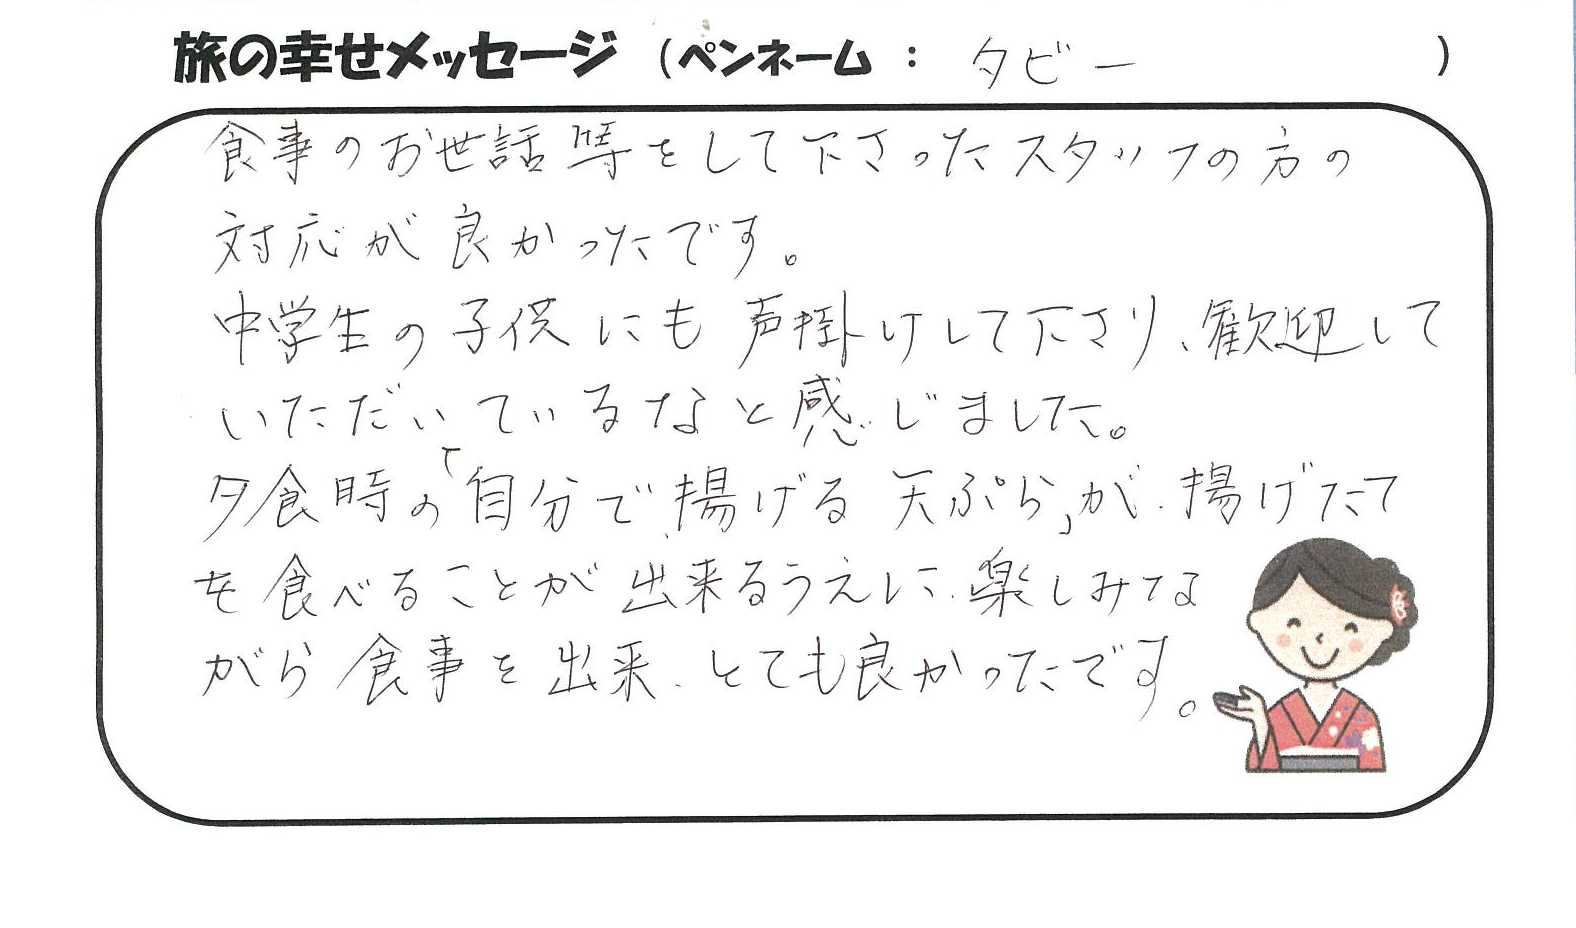 旅の幸せメッセージ (ペンネーム : タビー )
食事のお世話等をして下さったスタッフの方の
対応が良かったです。
中学生の子供にも声掛けして下さり、歓迎して
いただいているなと感じました。
夕食時の「自分で揚げる天ぷら」が、揚げたて
を食べることが出来るうえに、楽しみな
がら食事を出来、とても良かったです。